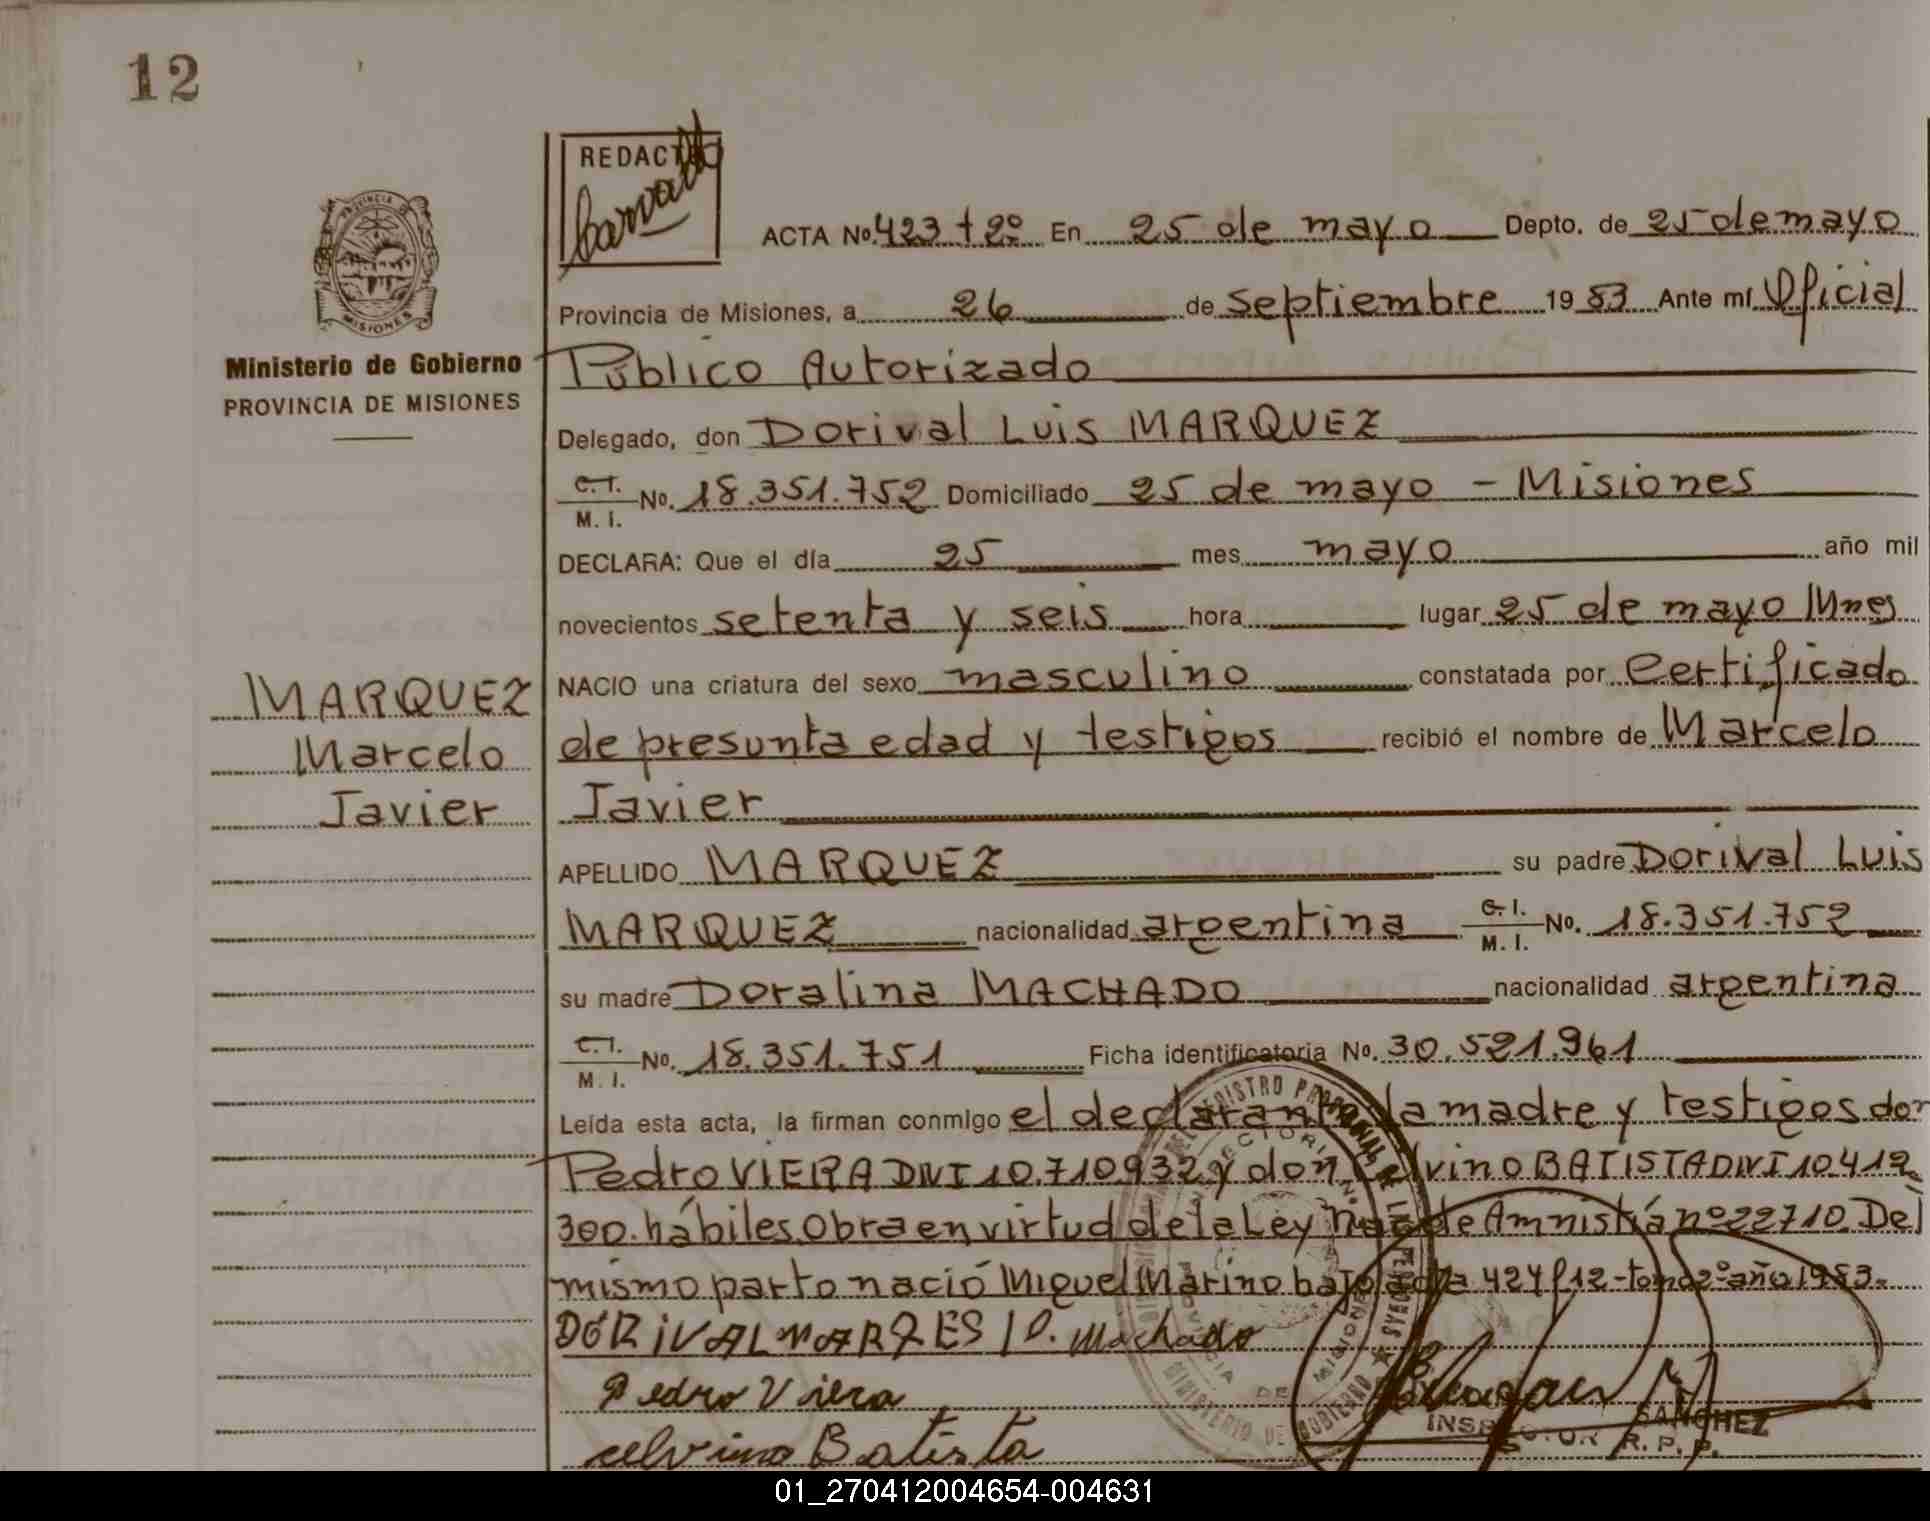 12
REDACTÓ
ACTA No. 423 t 2º En 25 de mayo Depto. de 25 de mayo
PROVINCIA D
MISIONES
Provincia de Misiones, a 26 de septiembre 1983 Ante mí Oficial
Ministerio de Gobierno
PROVINCIA DE MISIONES
Público Autorizado
Delegado, don Dorival Luis MARQUEZ
C.I. M.I. No. 18.351.752 Domiciliado 25 de mayo - Misiones
DECLARA: Que el día 25 mes mayo año mil
novecientos setenta y seis hora lugar 25 de mayo Mnes
NACIO una criatura del sexo masculino constatada por Certificado
de presunta edad y testigos recibió el nombre de Marcelo
Javier
MARQUEZ
Marcelo
Javier
APELLIDO MARQUEZ su padre Dorival Luis
MARQUEZ nacionalidad argentina C.I. M.I. No. 18.351.752
su madre Doralina MACHADO nacionalidad argentina
C.I. M.I. No. 18.351.751 Ficha identificatoria No. 30.521.961
Leída esta acta, la firman conmigo el declarante la madre y testigos don
Pedro VIERA DNI 10.710.932 y don vino BATISTA DNI 10.412.
300. hábiles. Obra en virtud de la Ley de Amnistía nº 22710. Del
mismo parto nació Miguel Marino bajo acta 424 f 12 - tomo 2º año 1983.
DORIVAL MARQES / D. Machado
Pedro Viera
Batista
SANCHEZ
R. P. P.
01_270412004654-004631